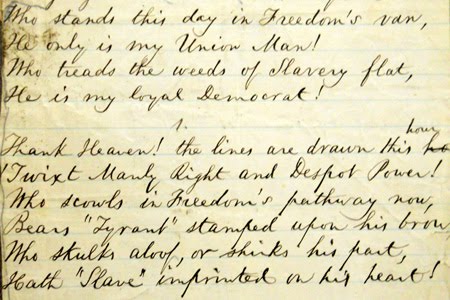 Who stands this day in Freedom's van,
He only is my Union Man!
Who treads the weeds of Slavery flat,
He is my loyal Democrat!
1.
Thank Heaven! the lines are drawn this hour
'Twixt Manly Right and Despot Power!
Who scowls in Freedom's pathway now,
Bears "Tyrant" stamped upon his brow,
Who skulks aloof, or shirks his part,
Hath "Slave" imprinted on his heart!